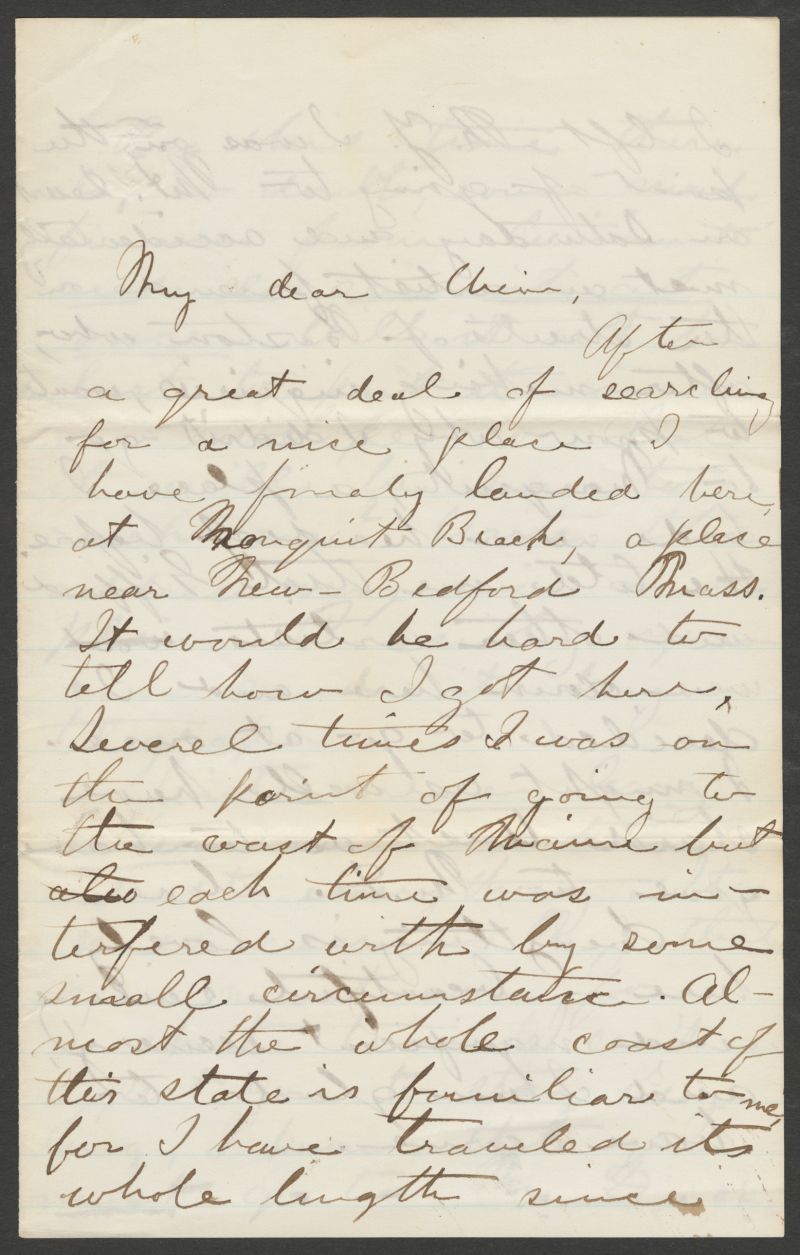 My dear Chinn,
After
a great deal of searching
for a nice place I
have finaly landed here,
at Nonquit Beach, a place
near New-Bedford Mass.
It would be hard to
tell how I got here,
Severel times I was on
the point of going to
the coast of Maine but
also each time was in-
terfered with by some
small circumstance. Al-
most the whole coast of
this state is familiar to me,
for I have traveled its
whole length since